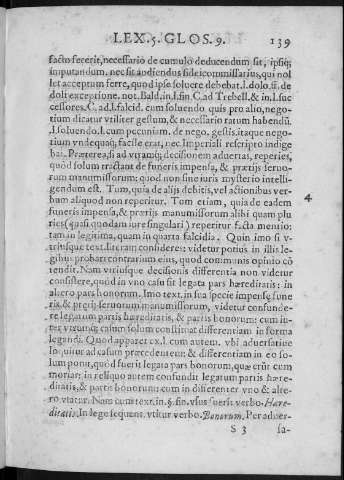 LEX. 5. GLOS. 9. 139
facto fecerit, necessario de cumulo deducendum sit, ipsiq;
imputandum. nec sit audiendus fideicommissarius, qui nol
let acceptum ferre, quod ipse soluere debebat. l. dolo. ff. de
doli exceptione. not. Bald. in. l. fin. C. ad Trebell. & in. l. suc
cessores. C. ad. l. falcid. cum soluendo quis pro alio, nego-
tium dicatur vtiliter gestum, & necessario ratum habendũ.
l. soluendo. l. cum pecuniam. de nego. gestis. itaque nego-
tium vndequaq; facile erat, nec Imperiali rescripto indige
bat. Præterea, si ad vtramq; decisionem aduertas, reperies,
quòd solum tractant de funeris impensa, & prætijs seruo-
rum manumissorum: quod non sine iuris mysterio intelli-
gendum est. Tum, quia de alijs debitis, vel actionibus ver-
bum aliquod non reperitur. Tom etiam, quia de eadem
funeris impensa, & prætijs manumissorum alibi quam plu
ries (quasi quodam iure singulari) reperitur facta mentio:
tam in legitima, quam in quarta falcidia. Quin imo si v-
triusque text. literam consideres: videtur potius in illis le-
gibus probari contrarium eius, quod communis opinio cõ
tendit. Nam vtriusque decisionis differentia non videtur
consistere, quòd in vno casu sit legata pars hæreditatis: in
altero pars bonorum. Imo text. in sua specie impensę fune
ris, & precij seruorum manumissorum, videtur confunde-
re legatum partis hæreditatis, & partis bonorum: cum in-
ter vtrumq; casum solum constituat differentiam in forma
legandi. Quod apparet ex. l. cum autem. vbi aduersatiue
loquitur ad casum præcedentem: & differentiam in eo so-
lum ponit, quòd fuerit legata pars bonorum, quæ erũt cum
moriar: in reliquo autem confundit legatum partis hære-
ditatis, & partis bonorum: cum in differenter vno & alte-
ro vtatur. Nam cum text. in. §. fin. vsus fuerit verbo. Hære-
ditatis. In lege sequent. vtitur verbo. Bonorum. Per aduer-
4
S 3 sa-